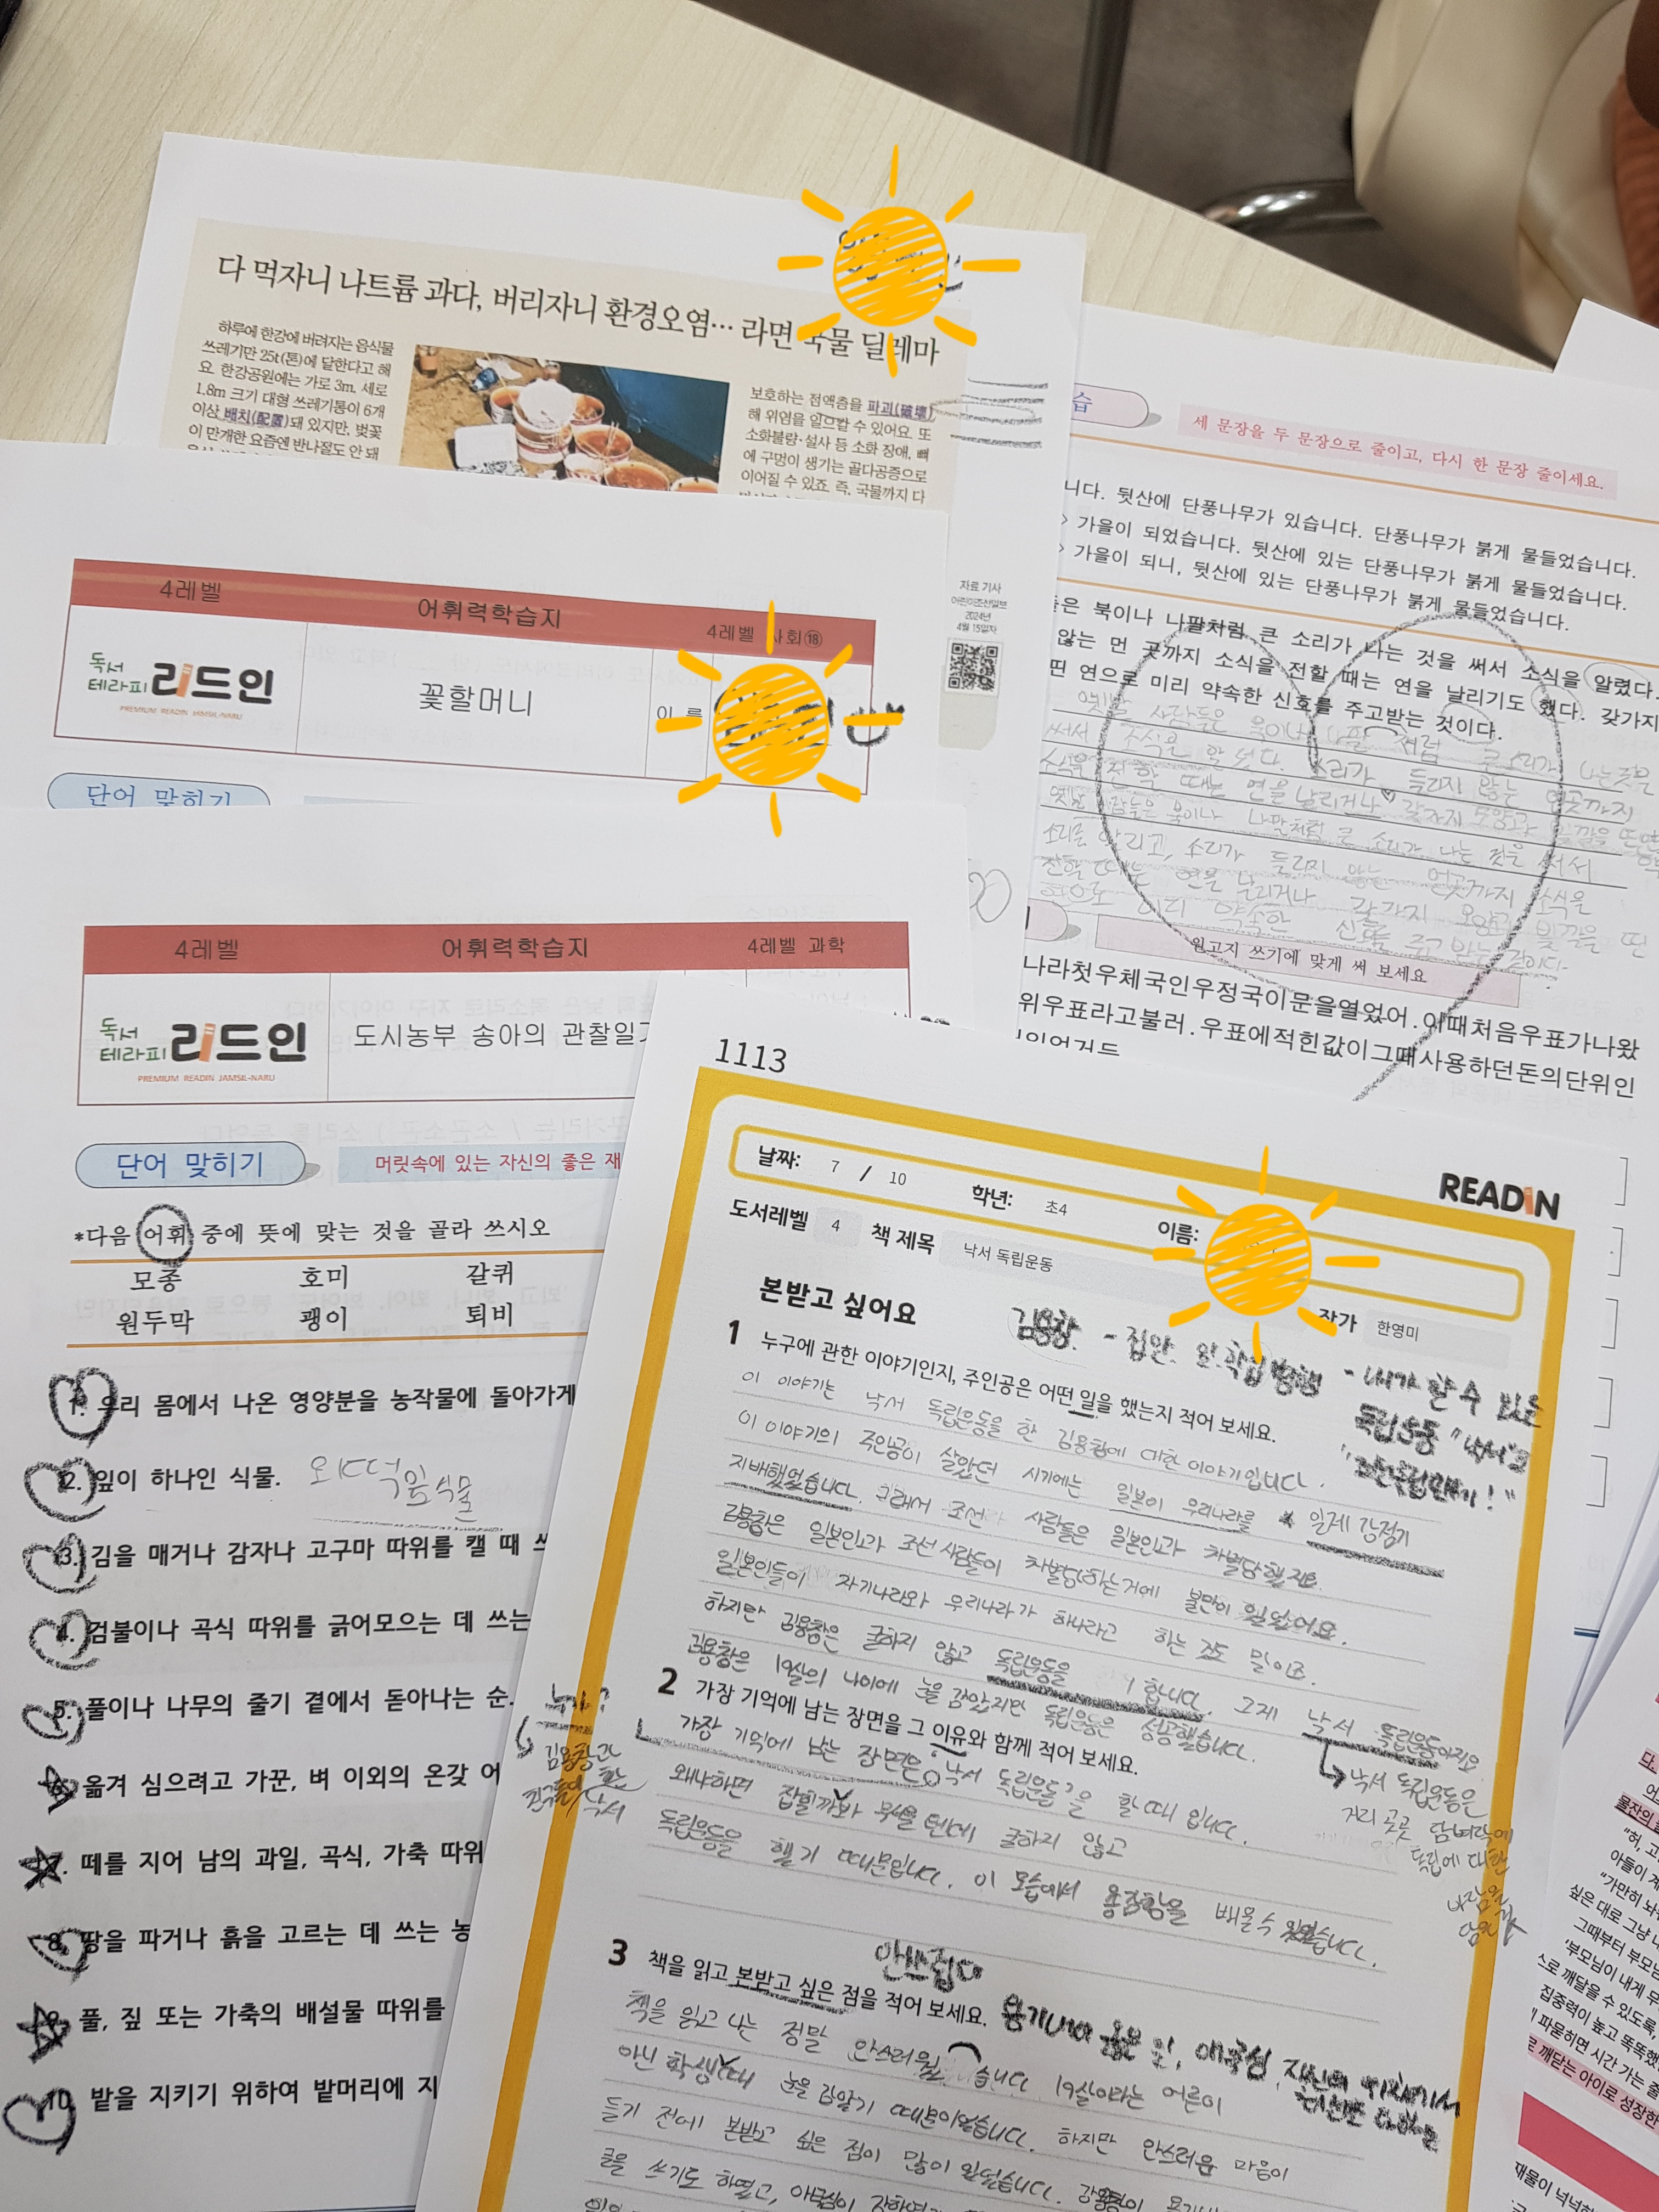 다 먹자니 나트륨 과다, 버리자니 환경오염… 라면 국물 딜레마
하루에 한강에 버려지는 음식물
쓰레기만 25t(톤)에 달한다고 해
요. 한강공원에는 가로 3m, 세로
1.8m 크기 대형 쓰레기통이 6개
이상 배치(配置)돼 있지만, 벚꽃
이 만개한 요즘엔 반나절도 안 돼
보호하는 점액층을 파괴(破壞)
해 위염을 일으킬 수 있어요. 또
소화불량·설사 등 소화 장애, 뼈
에 구멍이 생기는 골다공증으로
이어질 수 있죠. 즉, 국물까지 다
자료 기사
어린이조선일보
2024년
4월 15일자
습
세 문장을 두 문장으로 줄이고, 다시 한 문장 줄이세요.
니다. 뒷산에 단풍나무가 있습니다. 단풍나무가 붉게 물들었습니다.
> 가을이 되었습니다. 뒷산에 있는 단풍나무가 붉게 물들었습니다.
> 가을이 되니, 뒷산에 있는 단풍나무가 붉게 물들었습니다.
들은 북이나 나팔처럼 큰 소리가 나는 것을 써서 소식을 알렸다.
않는 먼 곳까지 소식을 전할 때는 연을 날리기도 했다. 갖가지
띤 연으로 미리 약속한 신호를 주고받는 것이다.
옛날 사람들은 북이나 나팔 처럼 큰 소리가 나는것을
써서 소식을 알렸다. 소리가 들리지 않는 먼곳까지
소식을 전할 때는 연을 날리거나 갖가지 모양과 빛깔을 띤 연
옛날 사람들은 북이나 나팔처럼 큰 소리가 나는 것을 써서
소리를 알리고, 소리가 들리지 않는 먼곳까지 소식을
전할 때는 연을 날리거나 갖가지 모양과 빛깔을 띤
연으로 미리 약속한 신호를 주고 받는 것이다.
원고지 쓰기에 맞게 써 보세요
나라첫우체국인우정국이문을열었어.이때처음우표가나왔
위우표라고불러.우표에적힌값이그때사용하던돈의단위인
4레벨 어휘력학습지 4레벨 사회⑱
독서
테라피 리드인
PREMIUM READIN JAMSIL-NARU
꽃할머니
이 름
단어 맞히기
4레벨 어휘력학습지 4레벨 과학
독서
테라피 리드인
PREMIUM READIN JAMSIL-NARU
도시농부 송아의 관찰일기
단어 맞히기
머릿속에 있는 자신의 좋은 재
*다음 어휘 중에 뜻에 맞는 것을 골라 쓰시오
모종 호미 갈퀴
원두막 괭이 퇴비
1. 우리 몸에서 나온 영양분을 농작물에 돌아가게
2. 잎이 하나인 식물. 외떡잎식물
3. 김을 매거나 감자나 고구마 따위를 캘 때 쓰
4. 검불이나 곡식 따위를 긁어모으는 데 쓰는
5. 풀이나 나무의 줄기 곁에서 돋아나는 순.
6. 옮겨 심으려고 가꾼, 벼 이외의 온갖 어
7. 떼를 지어 남의 과일, 곡식, 가축 따위
8. 땅을 파거나 흙을 고르는 데 쓰는 농
9. 풀, 짚 또는 가축의 배설물 따위를
10. 밭을 지키기 위하여 밭머리에 지
1113
READIN
날짜: 7 / 10 학년: 초4 이름:
도서레벨 4 책 제목 낙서 독립운동 작가 한영미
본받고 싶어요
김용창 - 집안
- 내가 할 수 있는
독립운동 "낙서"
1 누구에 관한 이야기인지, 주인공은 어떤 일을 했는지 적어 보세요.
이 이야기는 낙서 독립운동을 한 김용창에 대한 이야기입니다.
이 이야기의 주인공이 살았던 시기에는 일본이 우리나라를 일제 강점기
지배했었습니다. 그래서 조선 사람들은 일본인과 차별당했지요.
김용창은 일본인과 조선 사람들이 차별당하는거에 불만이 있었어요.
일본인들이 자기나라와 우리나라가 하나라고 하는 것도 말이죠.
하지만 김용창은 굴하지 않고 독립운동을 합니다. 그게 낙서 독립운동이지요
김용창은 19살의 나이에 눈을 감았지만 독립운동은 성공했습니다.
낙서 독립운동은
거리 곳곳 담벼락에
독립에 대한
2 가장 기억에 남는 장면을 그 이유와 함께 적어 보세요.
가장 기억에 남는 장면은 '낙서 독립운동'을 할 때 입니다.
왜냐하면 잡힐까봐 무서울 텐데 굴하지 않고
독립운동을 했기 때문입니다. 이 모습에서 용감함을 배울 수 있었습니다.
김용창과
친구들이 한
낙서
안쓰럽다
3 책을 읽고 본받고 싶은 점을 적어 보세요.
용기내어 옳은 일, 애국심
책을 읽고 나는 정말 안스러웠습니다 19살이라는 어른이
아닌 학생때 눈을 감았기 때문이었습니다. 하지만 안스러운 마음이
들기 전에 본받고 싶은 점이 많이 있었습니다.
글을 쓰기도 하였고,
단.
물자의
"허, 고
아들이 계
"가만히 놔
싶은 대로 그냥
그때부터 부모
'부모님이 내게 무
스로 깨달을 수 있도록,
집중력이 높고 똑똑했
파묻히면 시간 가는 줄
로 깨닫는 아이로 성장한
재물이 넉넉하